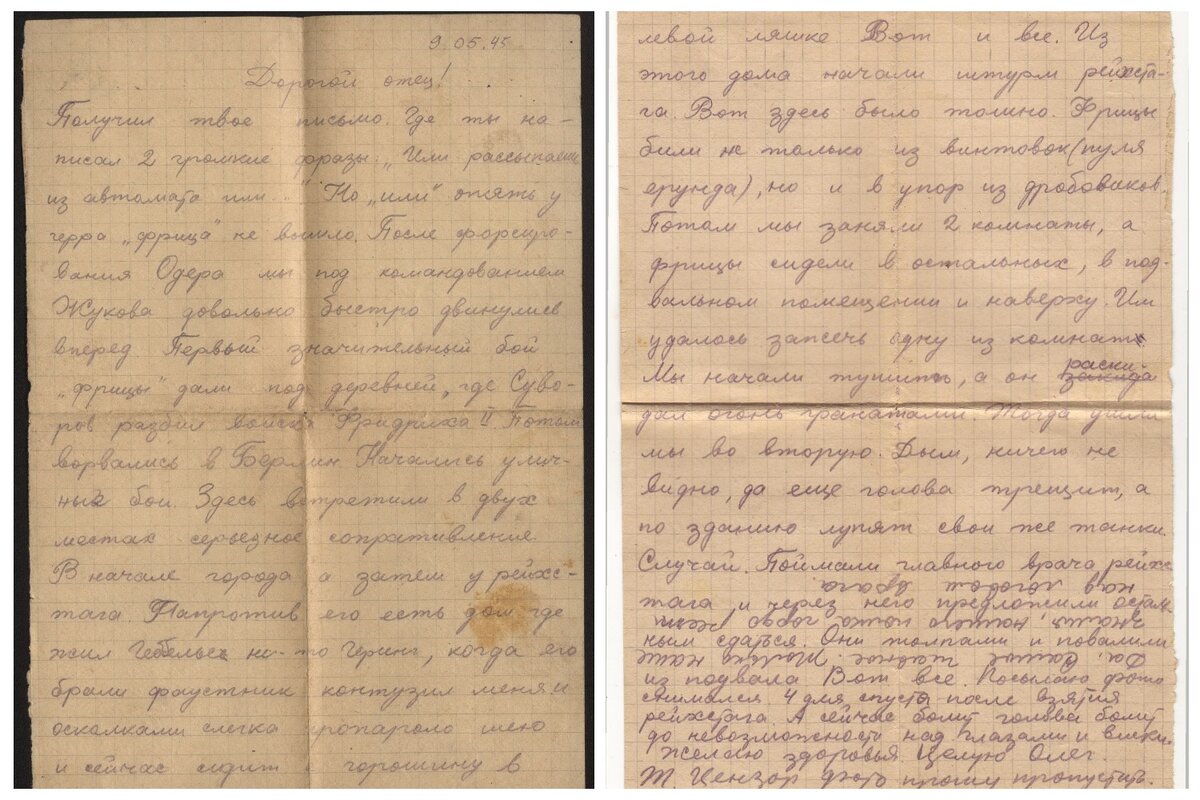 9.05.45
Дорогой отец!
Получил твое письмо. Где ты на-
писал 2 громкие фразы. „Или рассыпаешь
из автомата или..." Но „или" опять у
герра „фрица" не вышло. После форсиро-
вания Одера мы под командованием
Жукова довольно быстро двинулись
вперед. Первый значительный бой
„фрицы" дали под деревней, где Суво-
ров разбил войска Фридриха II. Потом
ворвались в Берлин. Начались улич-
ные бои. Здесь встретили в двух
местах серьезное сопративление
В начале города а затем у рейхс-
тага. Напротив его есть дом где
жил Гебельс не-то Геринг, когда его
брали фаустник контузил меня и
осколками слегка пропароло шею
и сейчас сидит с горошину в
левой ляшке Вот и все. Из
этого дома начали штурм рейхста-
га. Вот здесь было тошно. Фрицы
били не только из винтовок (пуля
ерунда), но и в упор из дробовиков.
Потом мы заняли 2 комнаты, а
фрицы сидели в остальных, в под-
вальном помещении и наверху. Им
удалось запсечь одну из комнат
Мы начали тушить, а он раски-
дал огонь гранатами Тогда ушли
мы во вторую. Дым, ничего не
видно, да еще голова трещит, а
по зданию лупят свои же танки.
Случай. Поймали главного врача рейхс
тага и через него предложили осталь
ным сдаться. Они толпами и повалили
из подвала Вот все. Посылаю фото
снимался 4 дня спустя после взятия
рейхстага. А сейчас болит голова болит
до невозможности над глазами и виски.
Желаю здоровья Целую Олег.
Т. Цензор фото прошу пропустить.